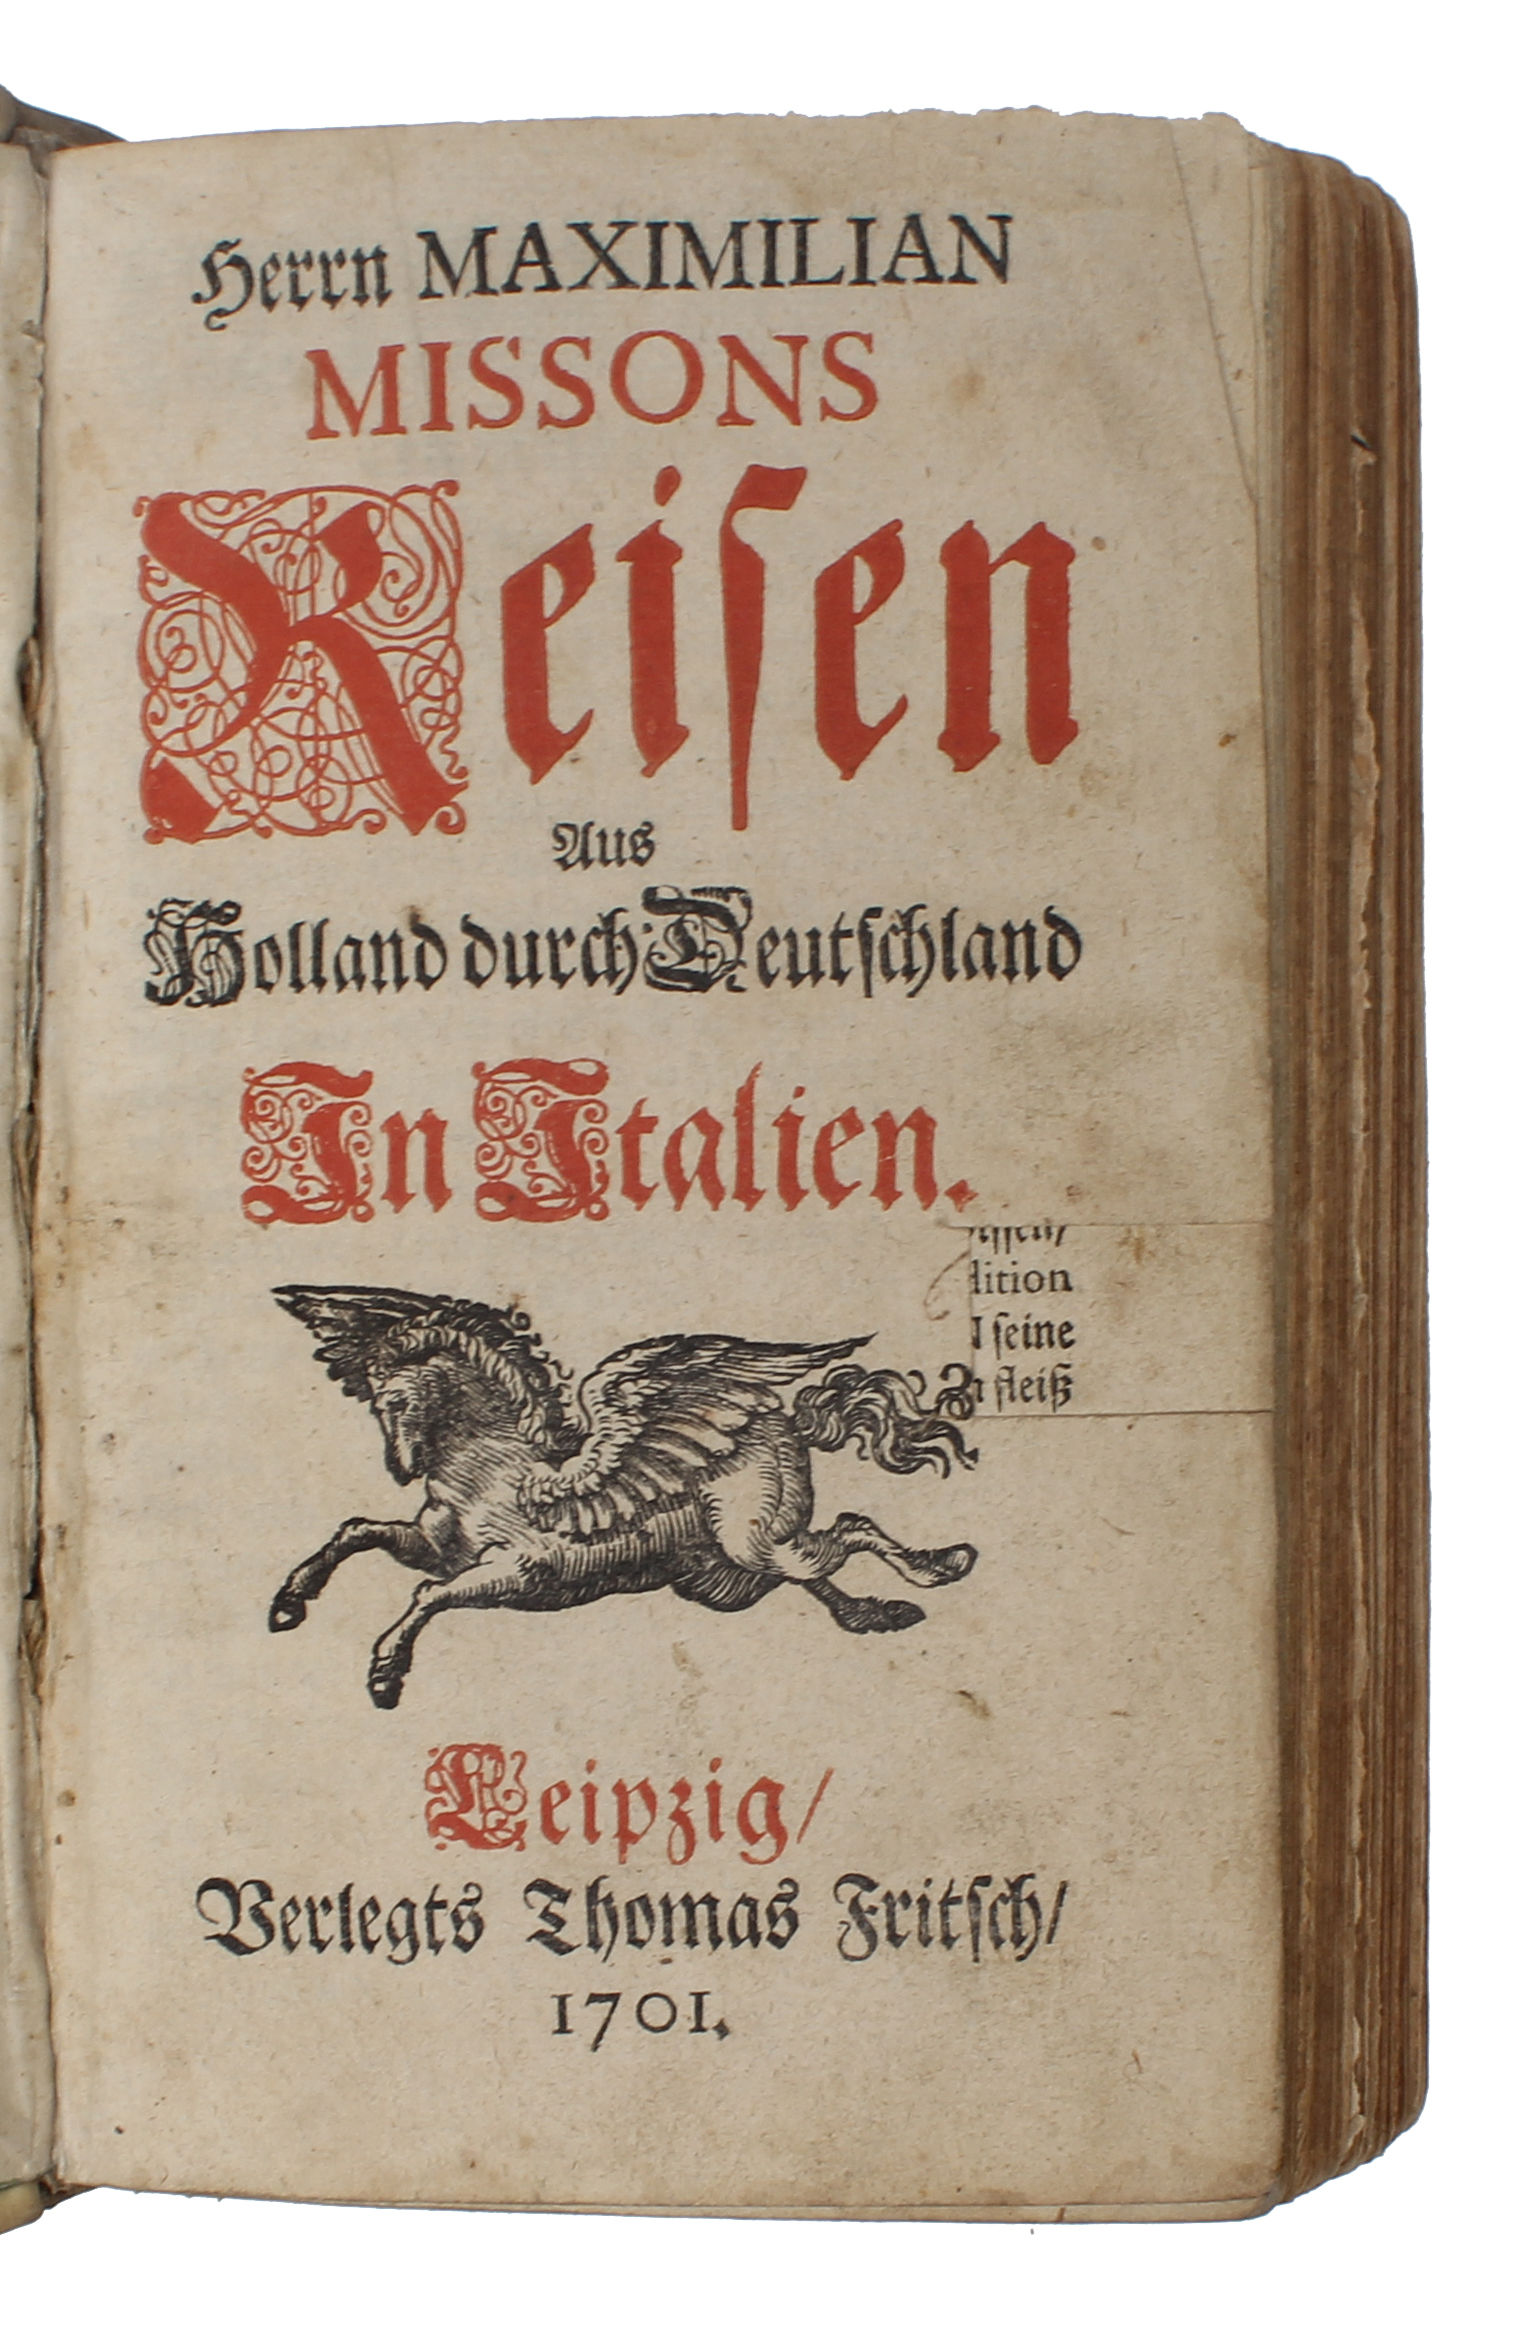 Herrn MAXIMILIAN
MISSONS
Reiſen
Aus
Holland durch Deutſchland
In Italien.
ſeine
fleiß
Leipzig/
Verlegts Thomas Fritſch/
1701.